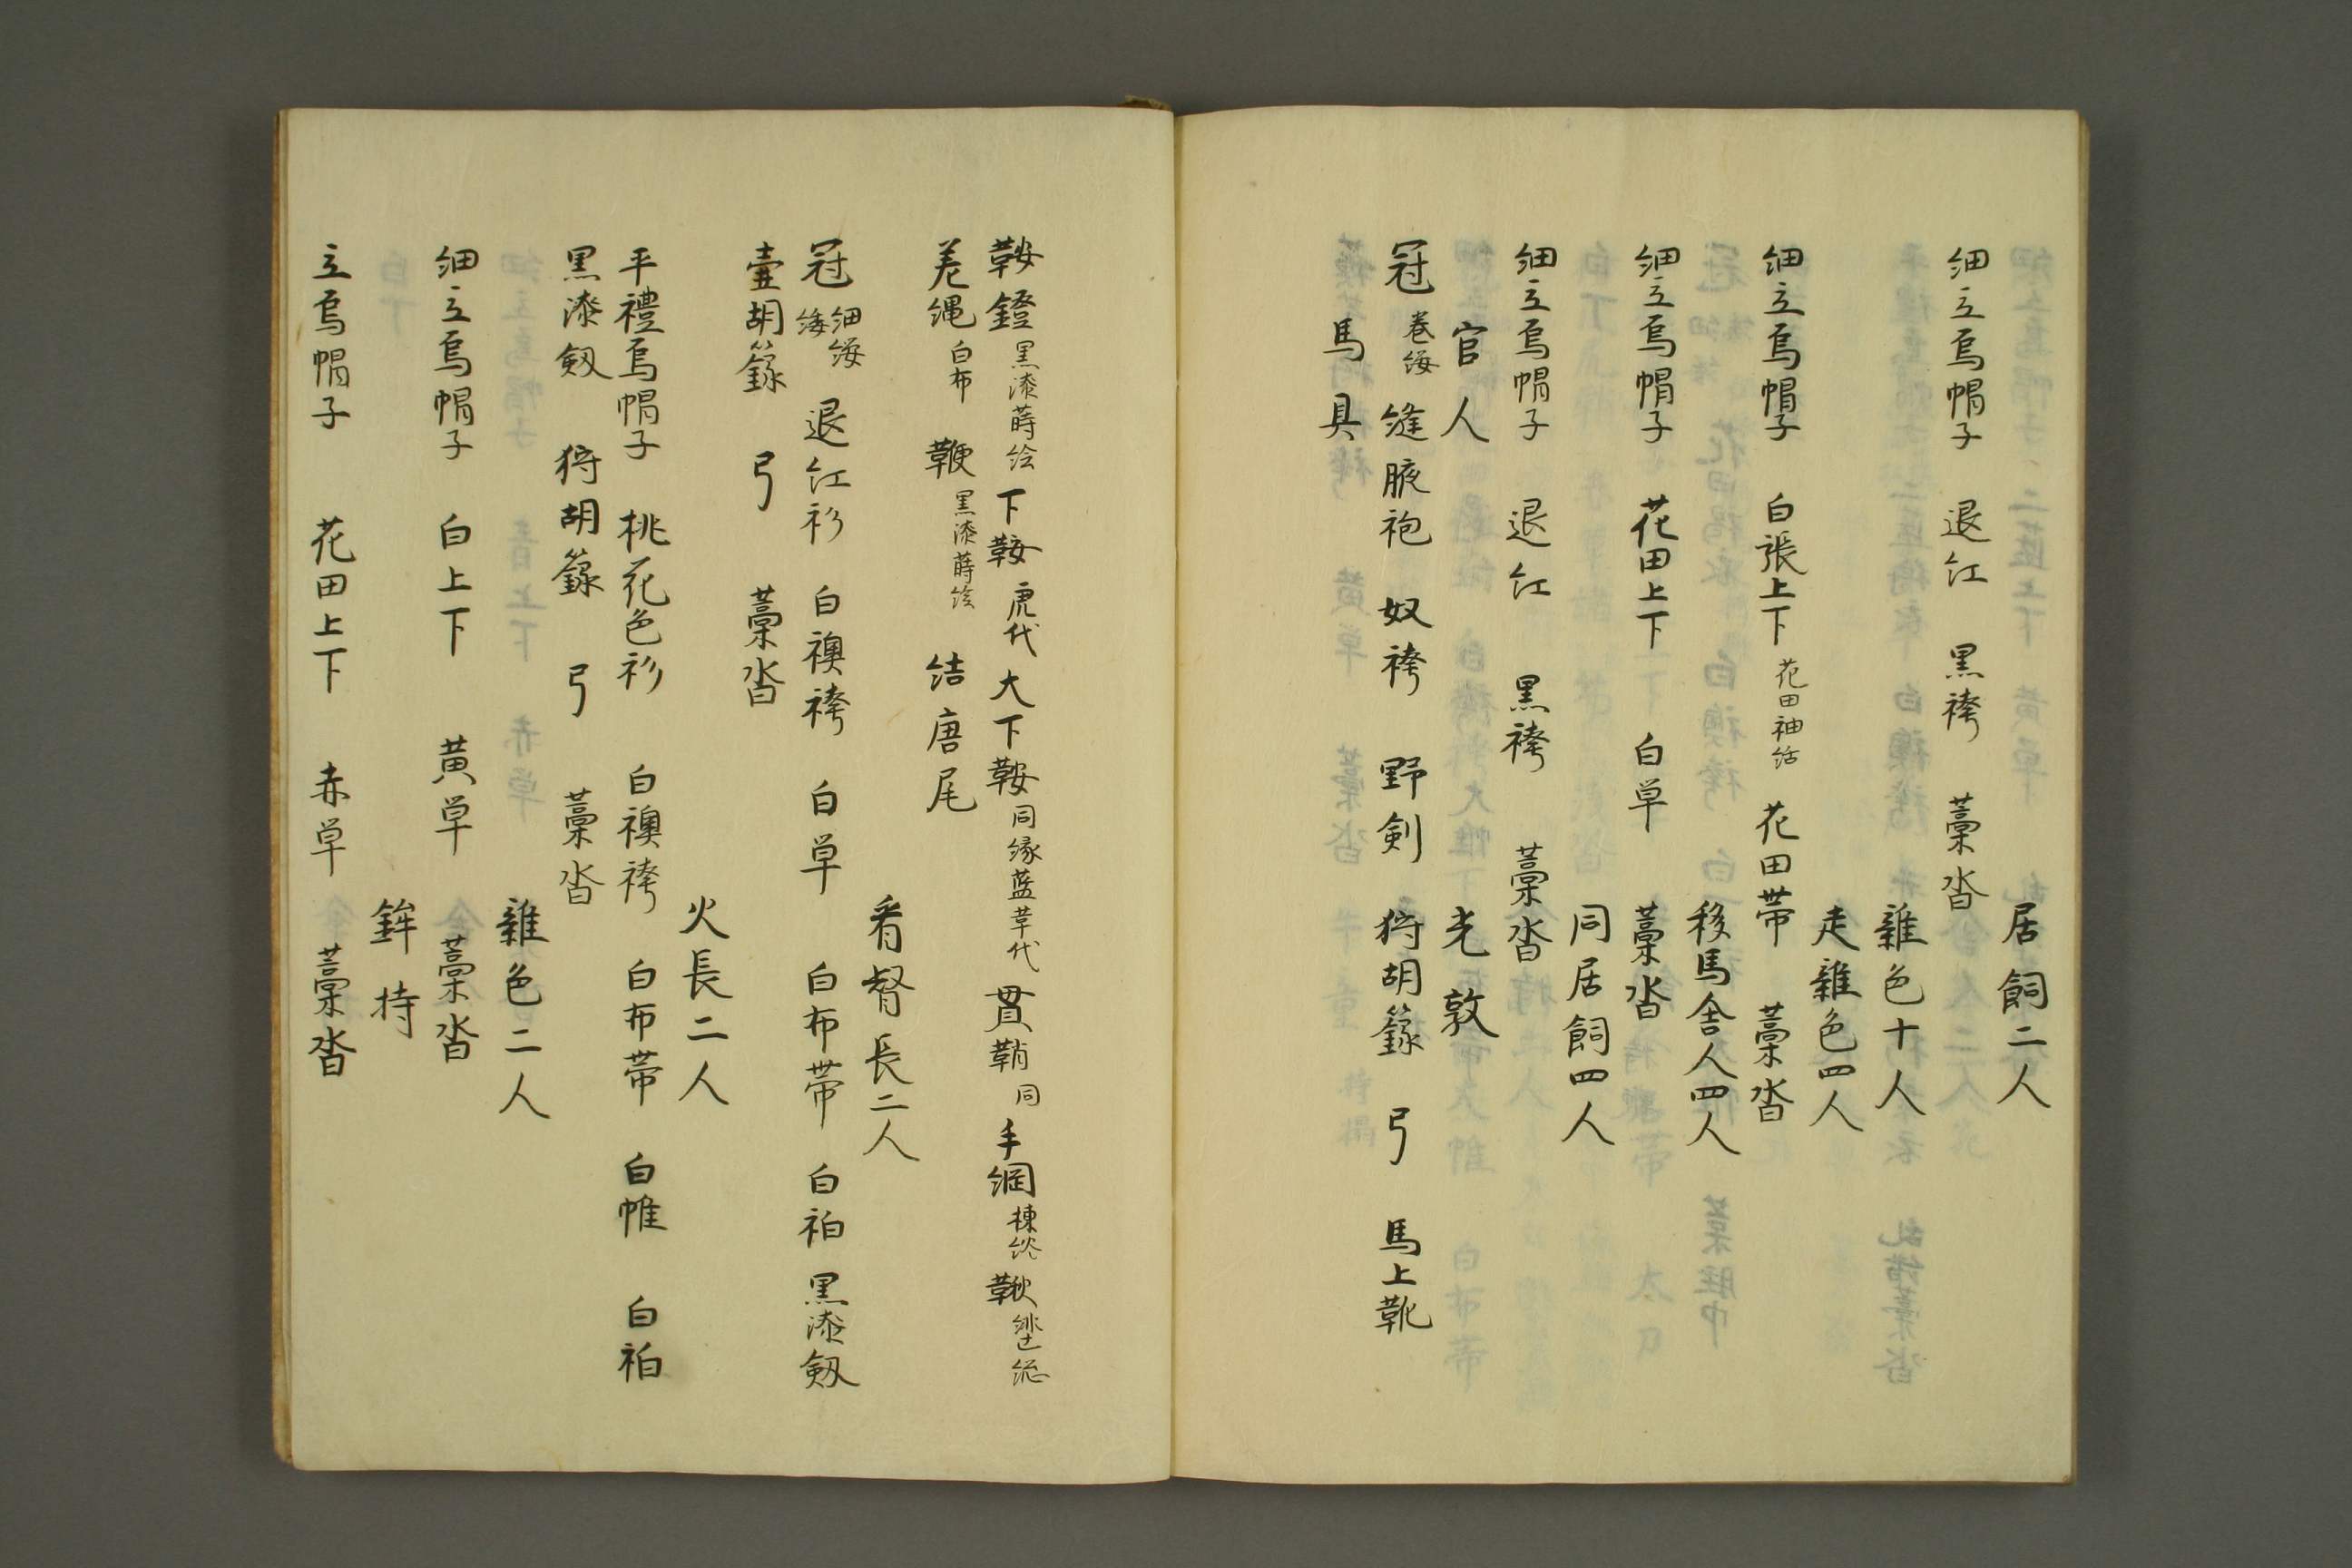 居飼二人
細立烏帽子 退紅 黒袴 藁沓
雜色十人
走雜色四人
細立烏帽子 白張上下 花田袖結 花田帯 藁沓
移馬舎人四人
細立烏帽子 花田上下 白単 藁沓
同居飼四人
細立烏帽子 退紅 黒袴 藁沓
官人 光敦
冠 巻緌 縫腋袍 奴袴 野剣 狩胡籙 弓 馬上靴
馬具
鞍鐙 黒漆蒔絵 下鞍 虎代 大下鞍 同縁藍革代 貫鞘 同 手綱 楝 鞦 総
差縄 白布 鞭 黒漆蒔絵 結唐尾
看督長二人
冠 細緌緌 退紅衫 白襖袴 白単 白布帯 白袙 黒漆剱
壷胡籙 弓 藁沓
火長二人
平禮烏帽子 桃花色衫 白襖袴 白布帯 白帷 白袙
黒漆剱 狩胡籙 弓 藁沓
雜色二人
細立烏帽子 白上下 黄単 藁沓
鉾持
立烏帽子 花田上下 赤単 藁沓